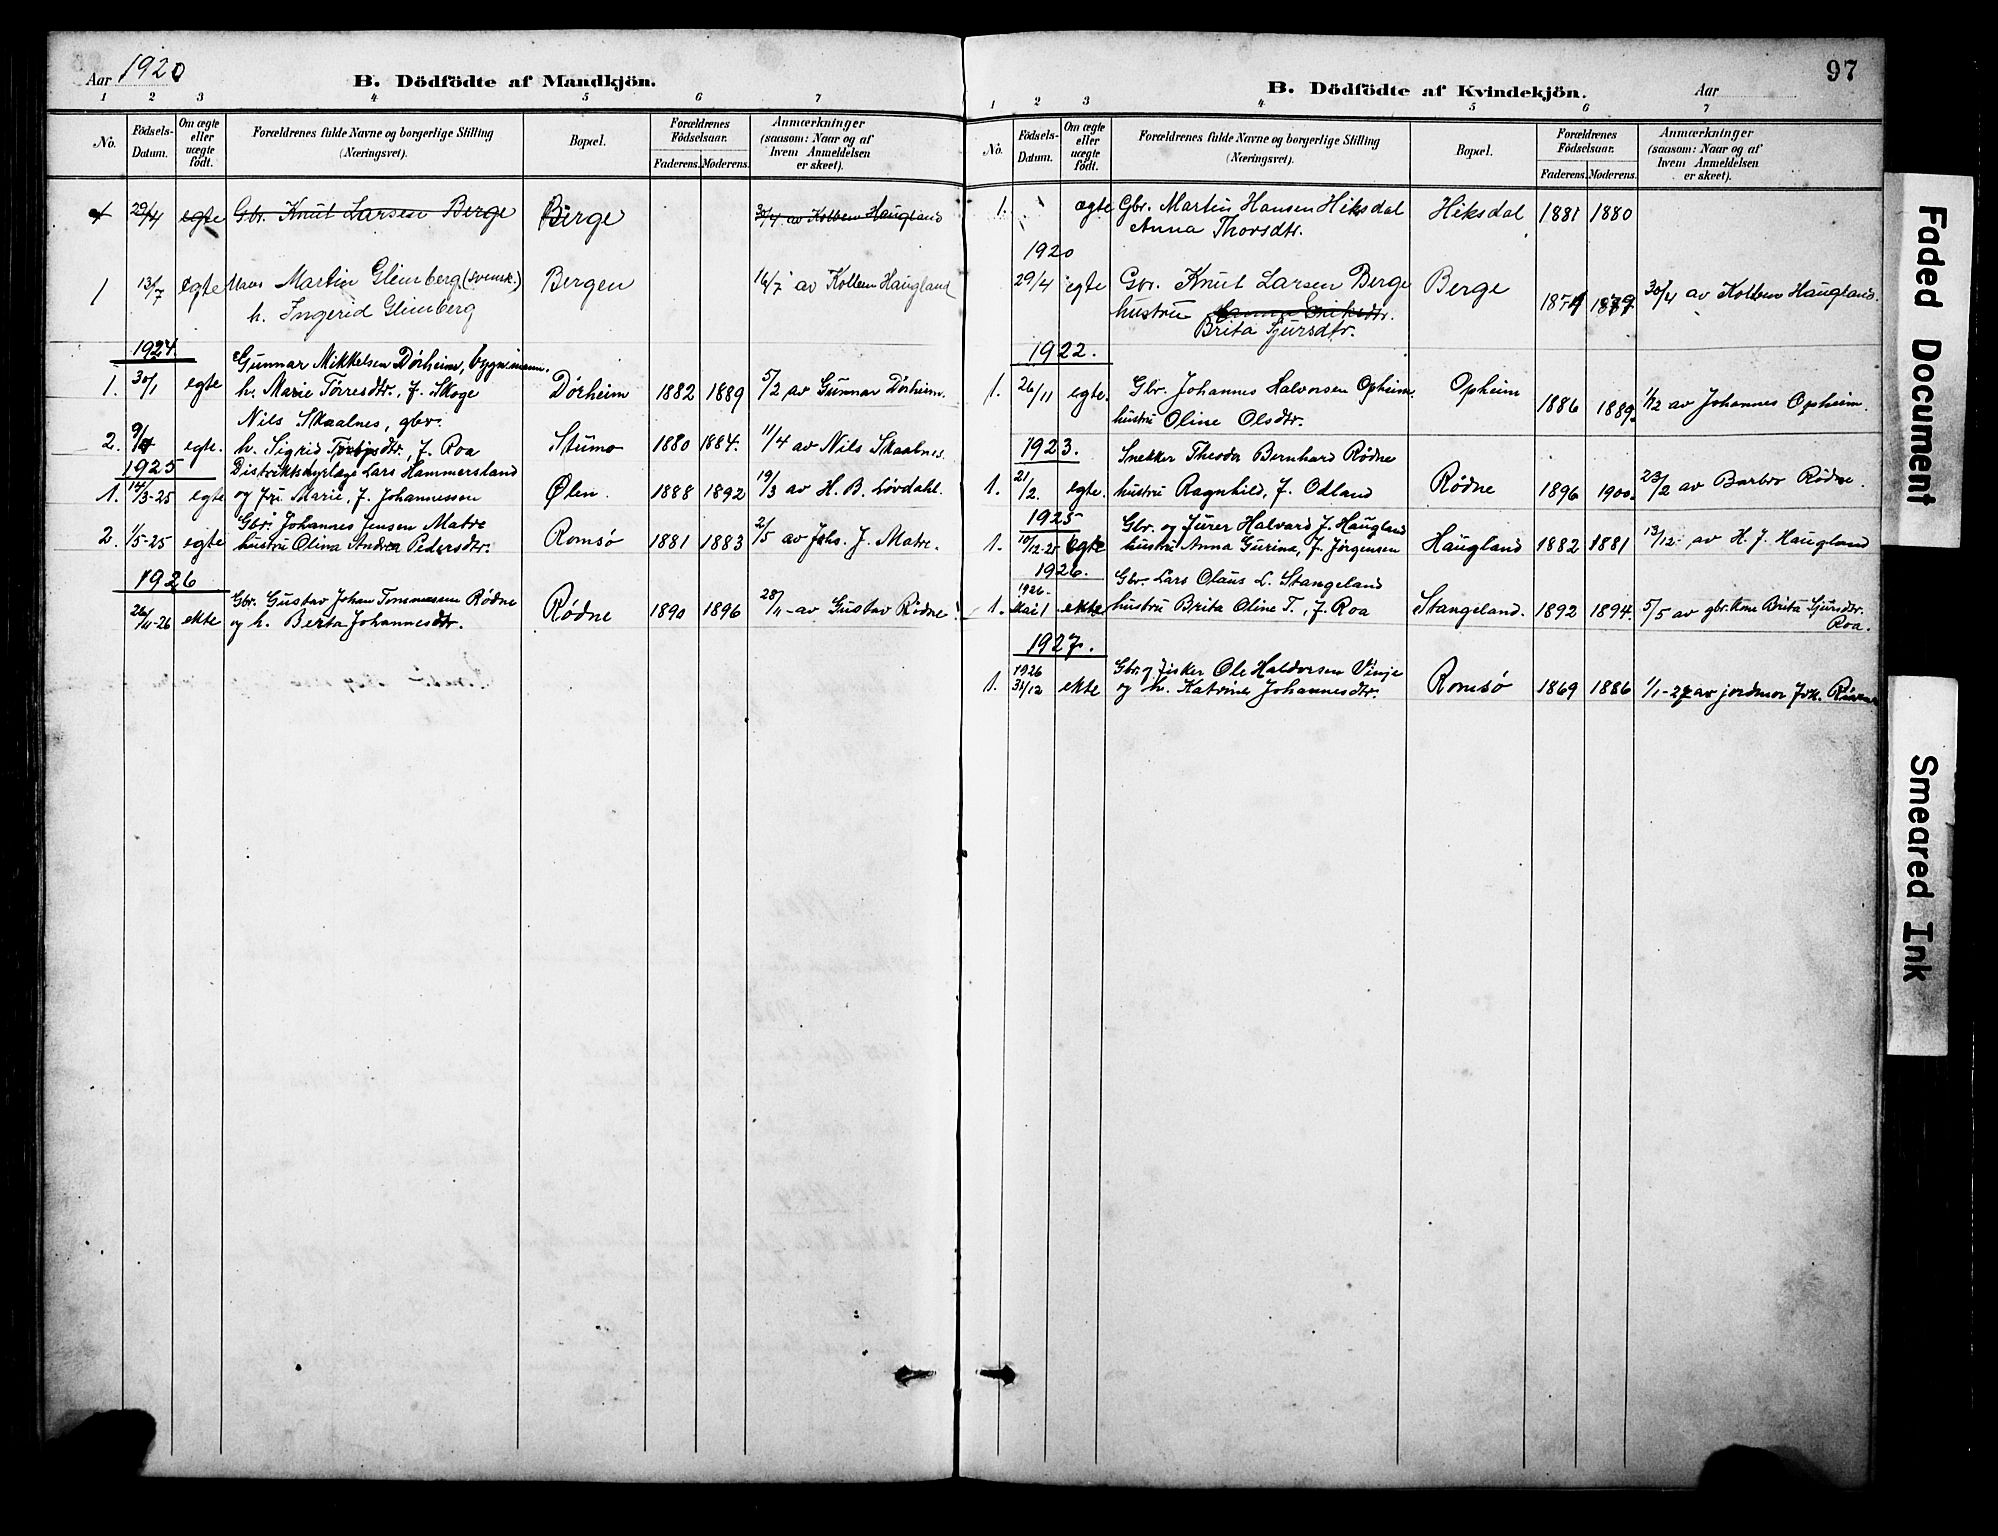 Aar 1920
B. Dödfödte af Mandkjön.
1 2 3 4 5 6 7
No.
Födsels-Datum.
Om ægte eller uægte födt.
Forældrenes fulde Navne og borgerlige Stilling (Næringsvei).
Bopæl.
Forældrenes Födselsaar.
Faderens. Moderens.
Anmærkninger (saasom: Naar og af hvem Anmeldelsen er skeet).
1 29/4 egte Gbr. Knut Larsen Berge Berge 30/4 av Kolben Haugland
1 13/7 egte Martin Glimberg (svensk.) Bergen 16/7 av Kolben Haugland
h. Ingerid Glimberg
1924
Gunnar Mikkelsen Dørheim, bygn.mann.
1. 30/1 egte h. Marie Tørresdtr., f. Skoge Dørheim 1882 1889 5/2 av Gunnar Dørheim.
Nils Skaalnes, gbr.
2. 9/4 egte. h. Sigrid dtr., f. Roa Stumo 1880 1884. 11/4 av Nils Skaalnes.
1925 Distriktsdyrlæge Lars Hammersland
1. 14/3-25 egte og fru Marie, f. Johannessen Ølen. 1888 1892 19/3 av H. B. Løvdahl.
Gbr. Johannes Jensen Matre
2. 1/5-25 egte hustru Olina Andrea Pedersdtr. Romsø 1881 1883 2/5 av Johs. J. Matre.
1926
Gbr. Gustav Johan Tonsmessen Rødne
26/11-26 ekte og h. Berta Johannesdtr. Rødne 1890 1896 28/11 - av Gustav Rødne
97
B. Dödfödte af Kvindekjön.
Aar
1 2 3 4 5 6 7
No.
Födsels-Datum.
Om ægte eller uægte födt.
Forældrenes fulde Navne og borgerlige Stilling (Næringsvei).
Bopæl.
Forældrenes Födselsaar.
Faderens. Moderens.
Anmærkninger (saasom: Naar og af hvem Anmeldelsen er skeet).
1. ægte Gbr. Martin Hansen Hiksdal Hiksdal 1881 1880
Anna Thorsdtr.
1920
29/4 egte Gbr. Knut Larsen Berge Berge 1879 30/4 av Kolben Haugland.
hustru
Brita Sjursdtr.
1922.
1. 26/11 egte. Gbr. Johannes Halvorsen Opheim. Opheim 1886 1889. 1/12 av Johannes Opheim.
hustru Oline Olsdtr.
1923. Snekker Theodor Bernhard Rødne
1. 21/2. egte. hustru Ragnhild, f. Odland Rødne 1896 1900. 23/2 av Barbro Rødne.
1925 Gbr. og furer Halvard J. Haugland
1. 10/12-25 egte hustru Anna Gurina, f. Jørgensen Haugland 1882 1881 13/12 av H. J. Haugland
1926. Gbr. Lars Olaus L. Stangeland
1. 1926. Mai 1 ekte hustru Brita Oline T., f. Roa Stangeland. 1892 1894. 5/5 av gbr. kone Brita Sjursdtr. Roa.
1927.
Gbr. og fisker Ole Haldorsen Vinje
1. 1926 31/12 ekte og h. Katrine Johannesdtr. Romsø 1869 1886 1/1-27 av jordmor Joh.
Faded Document
Smeared Ink